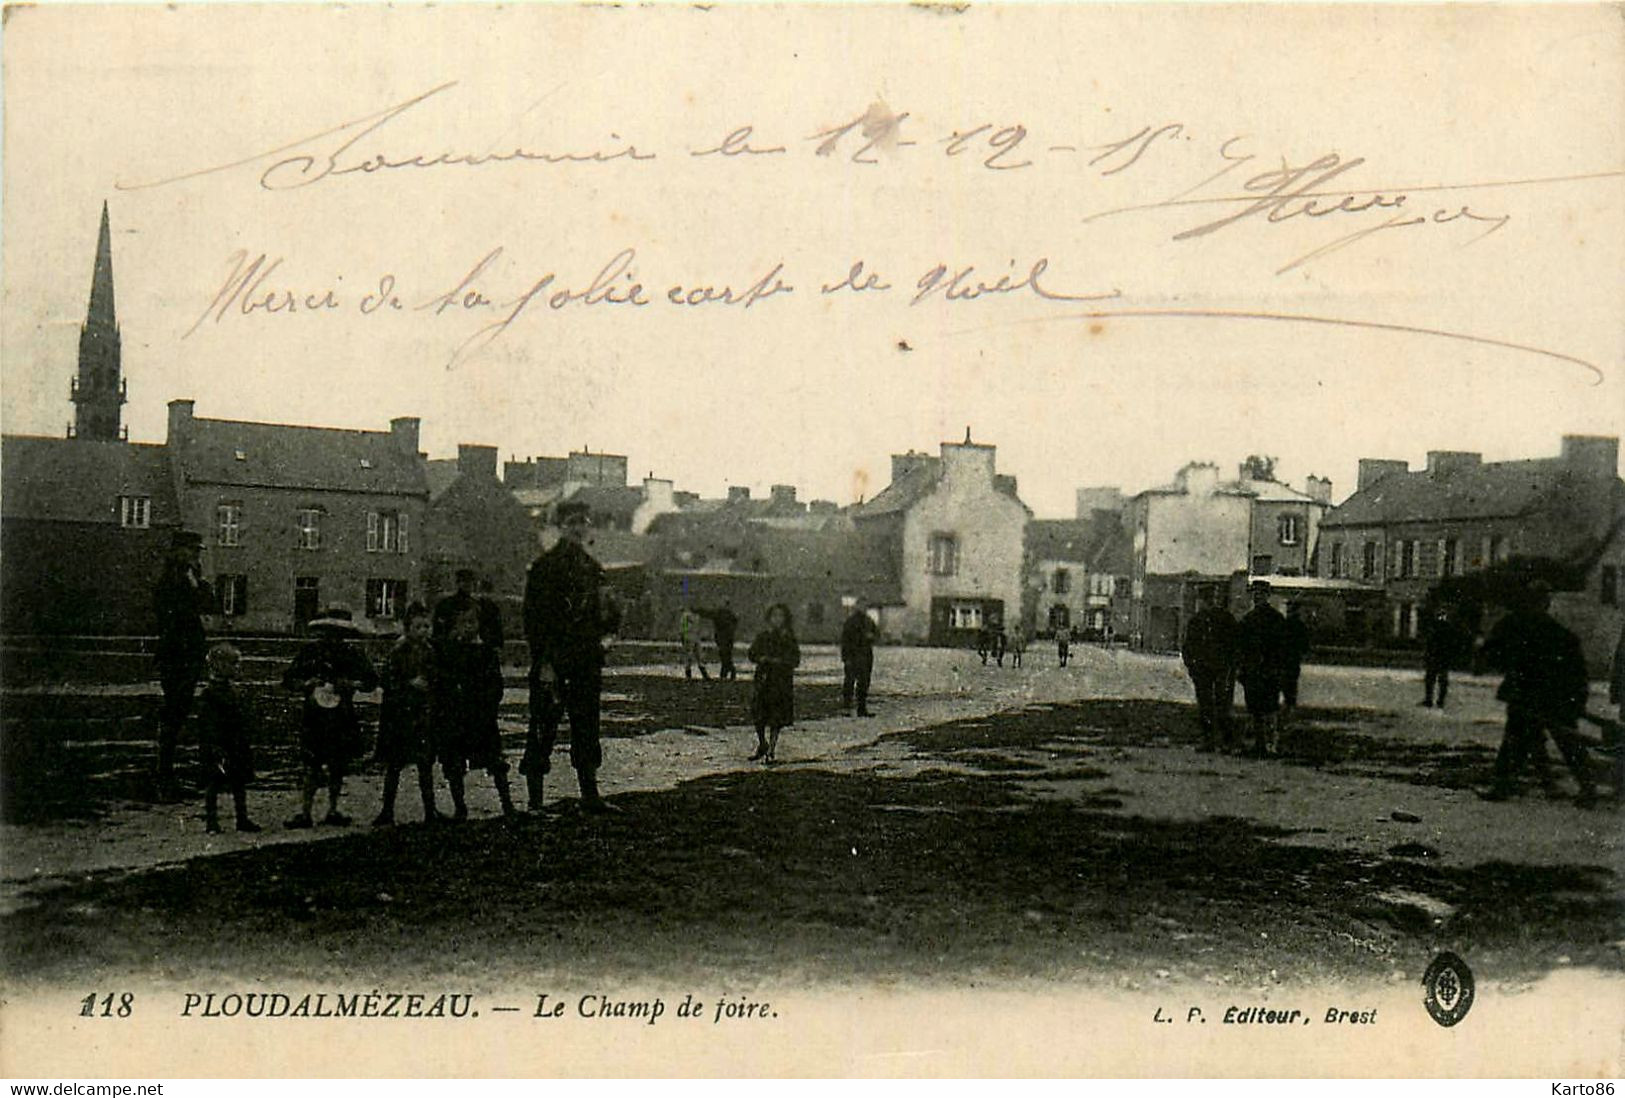 Souvenir le 12-12-15
Merci de la jolie carte de Noël
118 PLOUDALMÉZEAU. — Le Champ de foire.
L. P. Éditeur, Brest
www.delcampe.net
Karto86